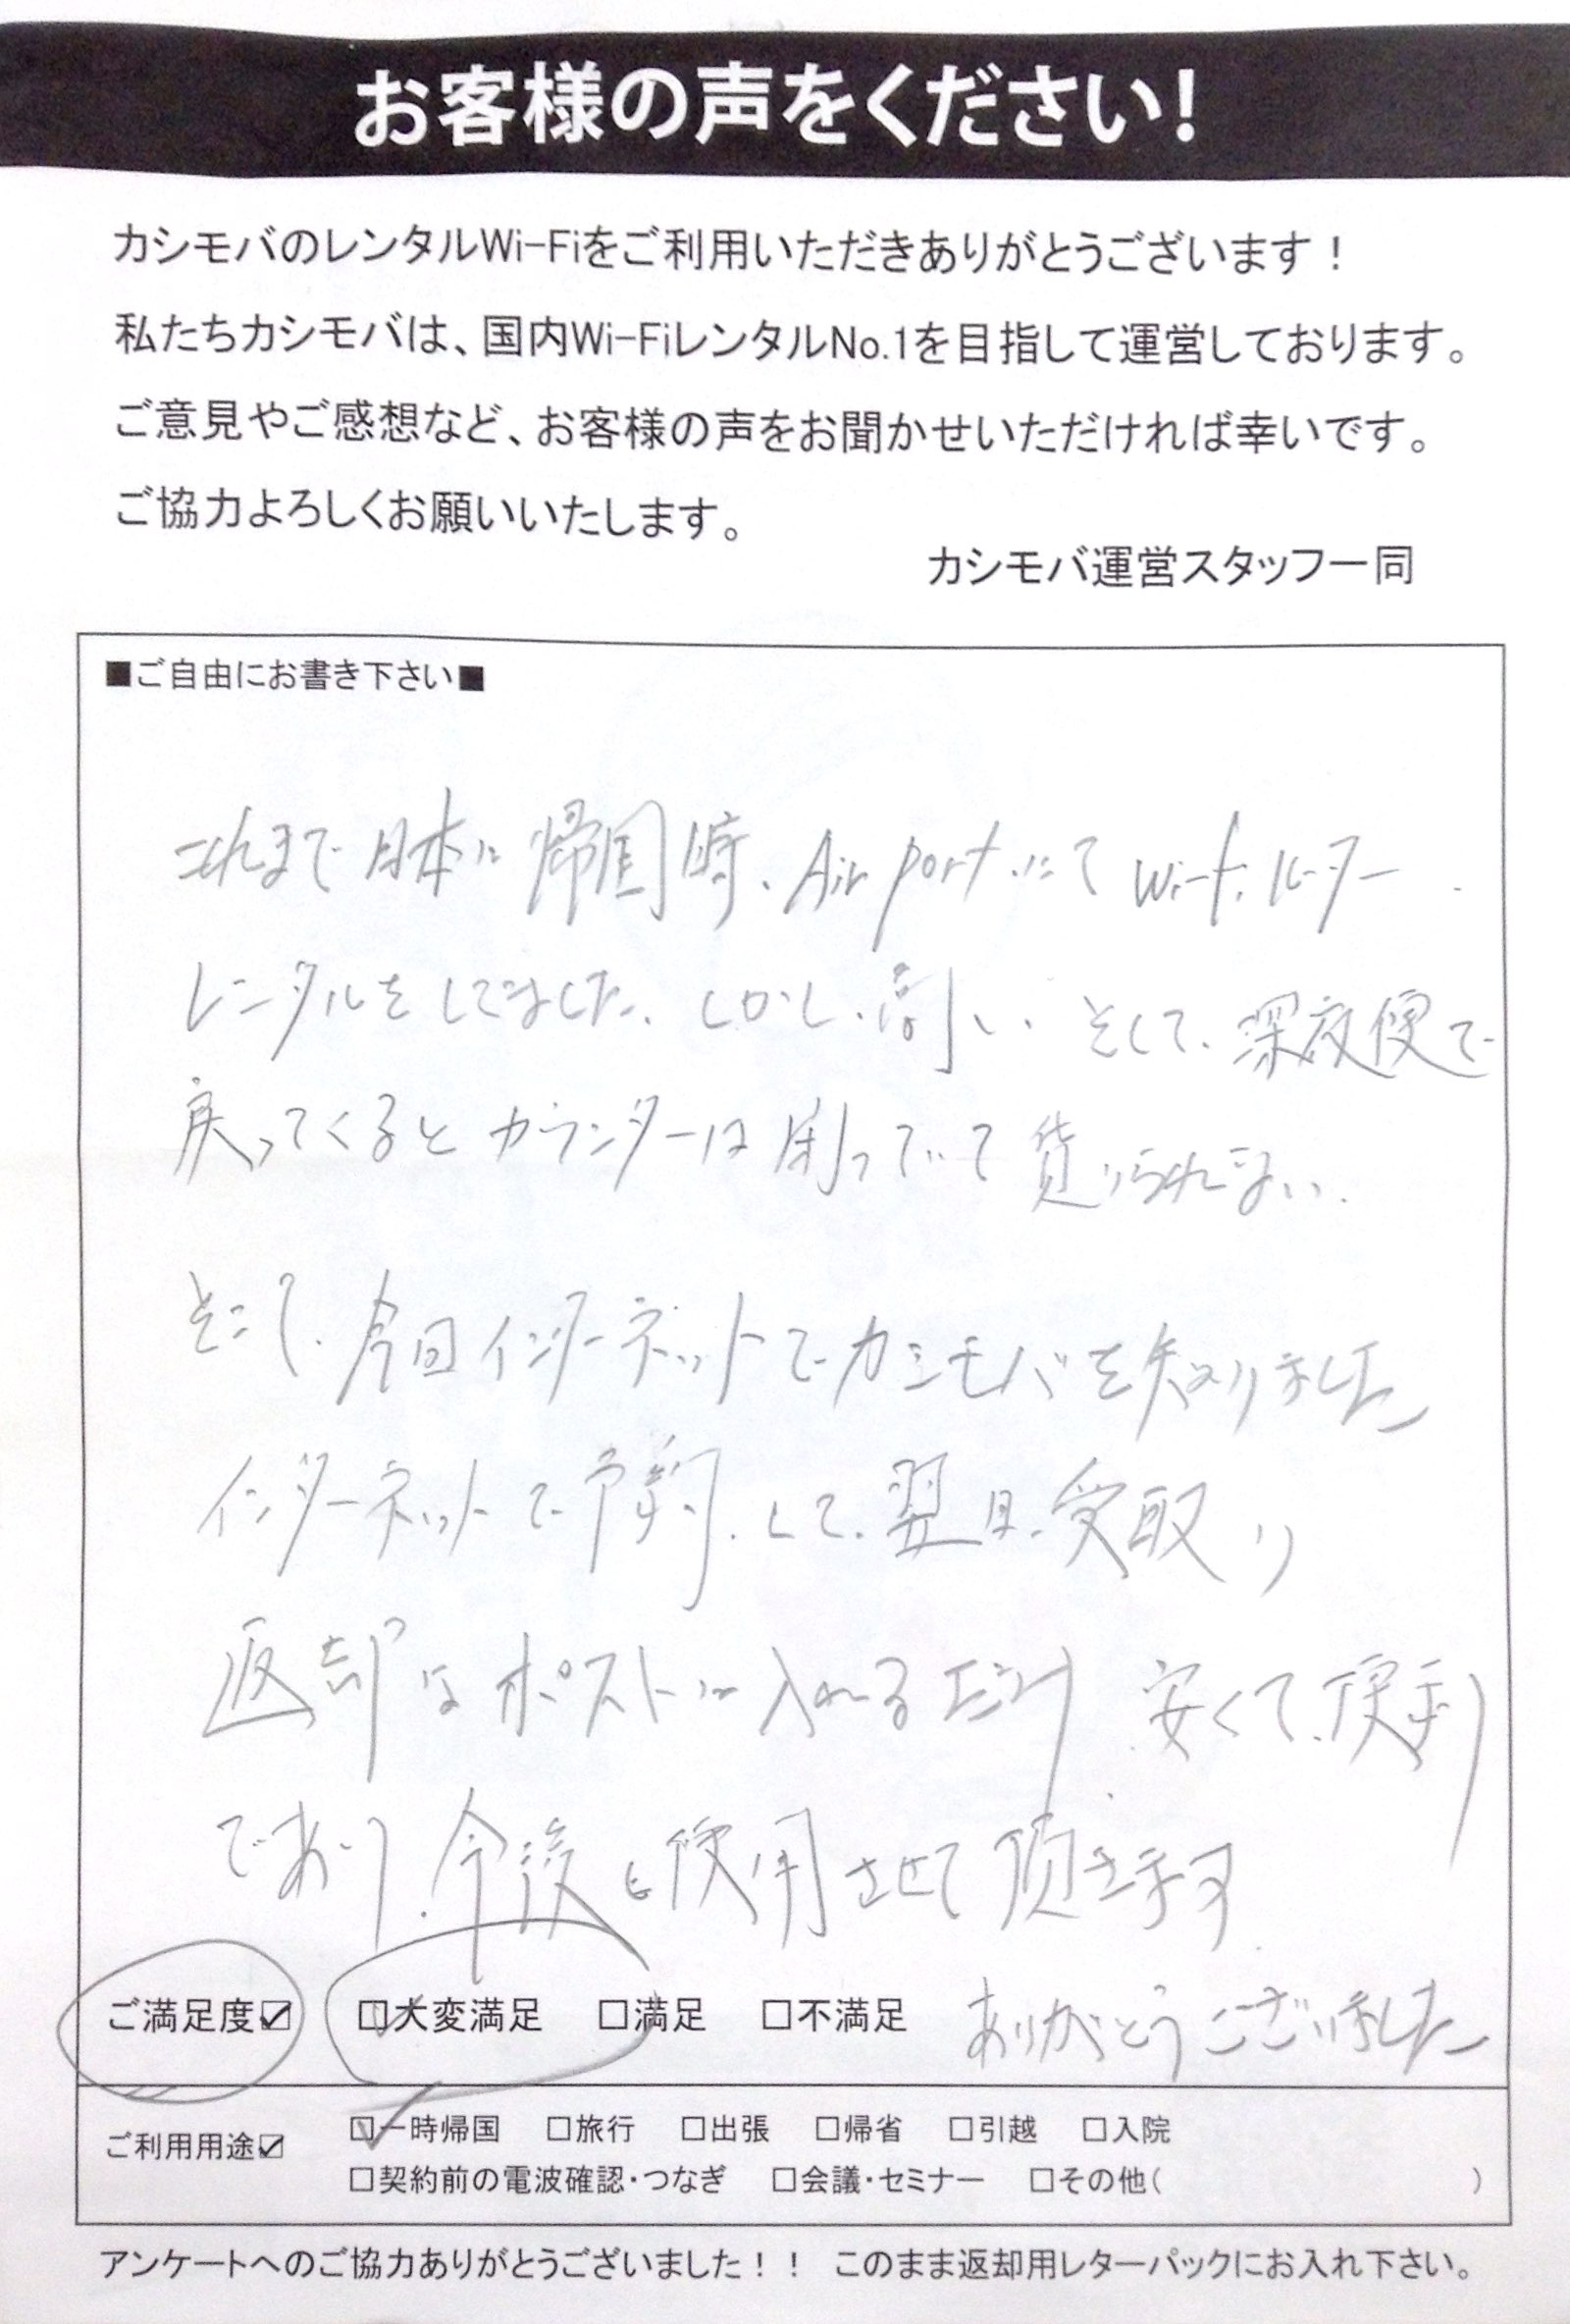 お客様の声をください!
カシモバのレンタルWi-Fiをご利用いただきありがとうございます！
私たちカシモバは、国内Wi-FiレンタルNo.1を目指して運営しております。
ご意見やご感想など、お客様の声をお聞かせいただければ幸いです。
ご協力よろしくお願いいたします。
カシモバ運営スタッフ一同
■ご自由にお書き下さい■
これまで日本に帰国時、Air portにて Wi-Fiルーター
レンタルをしてました、しかし、高い、そして、深夜便で
戻ってくるとカウンターは閉っていて貸りられない、
そこで、今回インターネットでカシモバを知りました
インターネットで予約、して、翌日、受取り
返却はポストに入れるだけ 安くて、便利
であり、今後も使用させて頂きます
ありがとうございました
ご満足度☑ □大変満足 □満足 □不満足
ご利用用途☑ □一時帰国 □旅行 □出張 □帰省 □引越 □入院
□契約前の電波確認・つなぎ □会議・セミナー □その他( )
アンケートへのご協力ありがとうございました！！ このまま返却用レターパックにお入れ下さい。